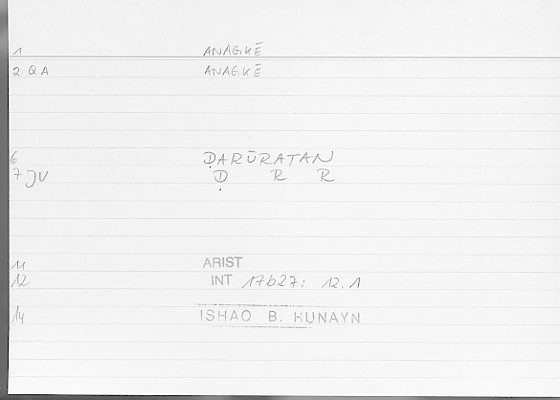 1 ANAGKĒ
2 QA ANAGKĒ
6 ḌARŪRATAN
7 JV Ḍ R R
11 ARIST
12 INT 17b27: 12.1
14 ISHAQ B. HUNAYN